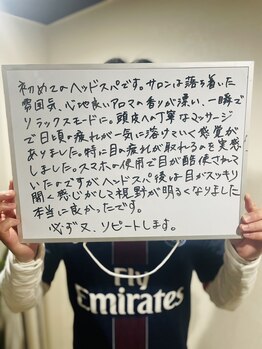 初めてのヘッドスパです。サロンは落ち着いた
雰囲気、心地良いアロマの香りが漂い、一瞬で
リラックスモードに。頭皮への丁寧なマッサージ
で日頃の疲れが一気に溶けていく感覚が
ありました。特に目の疲れが取れるのを実感
しました。スマホの使用で目が酷使されて
いたのですがヘッドスパ後は目がスッキリ
開く感じがして視野が明るくなりました
本当に良かったです。
必ず又、リピートします。
Fly
Emirates